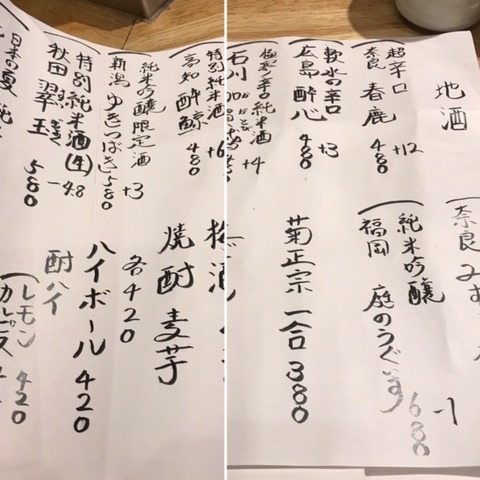 地酒
超辛口
奈良 春鹿 +12
480
軟水の辛口
広島 酔心 +3
480
極寒辛口純米酒
石川 加賀
+4
特別純米酒
高知 酔鯨 +6
480
純米吟醸限定酒
新潟 ゆきつばき +3
580
特別純米酒(生)
秋田 翠玉 -4.8
580
日本の夏
奈良 みむ
純米吟醸
福岡 庭のうぐいす -1
680
菊正宗 一合 380
梅酒
焼酎 麦 芋
各420
ハイボール 420
酎ハイ
レモン 420
カルピス